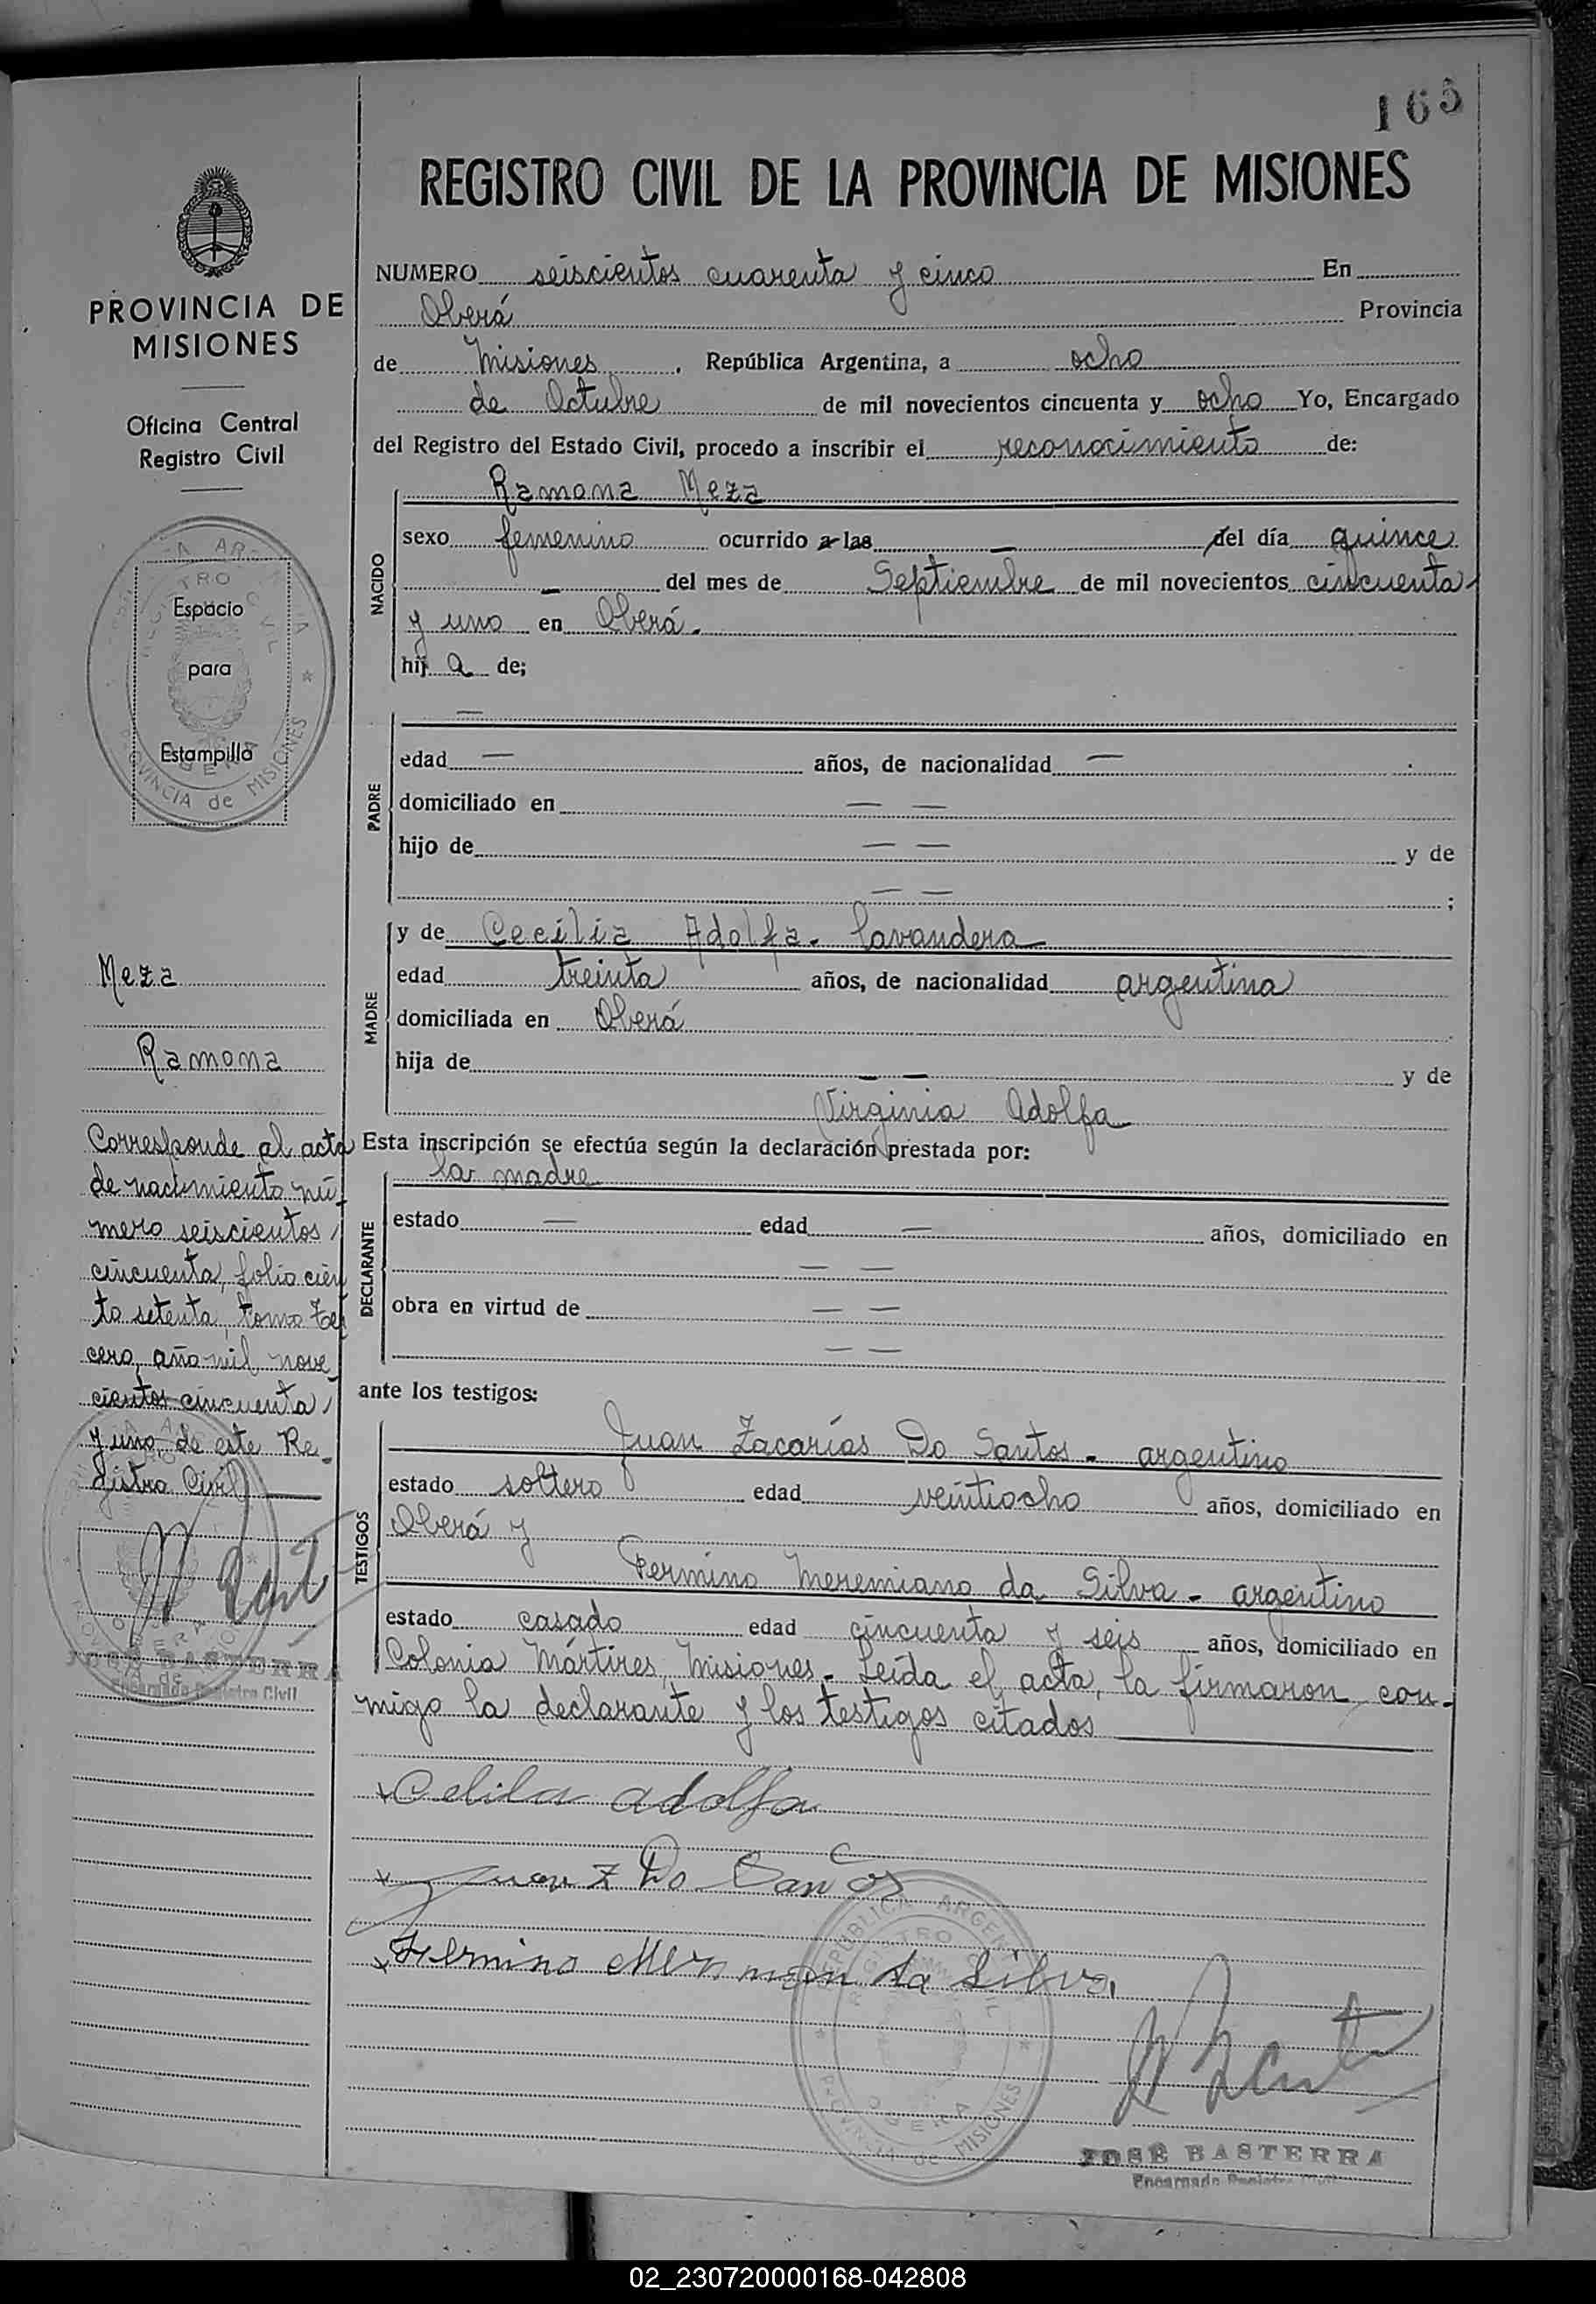 165
REGISTRO CIVIL DE LA PROVINCIA DE MISIONES
PROVINCIA DE
MISIONES
Oficina Central
Registro Civil
Espacio
para
Estampilla
NUMERO seiscientos cuarenta y cinco En
Oberá Provincia
de Misiones, República Argentina, a ocho
de Octubre de mil novecientos cincuenta y ocho Yo, Encargado
del Registro del Estado Civil, procedo a inscribir el reconocimiento de:
NACIDO
Ramona Meza
sexo femenino ocurrido a las — del día quince
— del mes de Septiembre de mil novecientos cincuenta
y uno en Oberá.
hij a de;
PADRE
—
edad — años, de nacionalidad —
domiciliado en — —
hijo de — — y de
— — ;
MADRE
y de Cecilia Adolfa. lavandera
edad treinta años, de nacionalidad argentina
domiciliada en Oberá
hija de — — y de
Virginia Adolfa
Esta inscripción se efectúa según la declaración prestada por:
DECLARANTE
la madre
estado — edad — años, domiciliado en
— —
obra en virtud de — —
— —
ante los testigos:
TESTIGOS
Juan Zacarías Do Santos - argentino
estado soltero edad veintiocho años, domiciliado en
Oberá y
Fermino Meremiano da Silva - argentino
estado casado edad cincuenta y seis años, domiciliado en
Colonia Mártires, Misiones. Leída el acta, la firmaron con-
migo la declarante y los testigos citados
Celila adolfa
Juan Z Do Santos
Fermino da Silva
JOSÉ BASTERRA
Encargado Registro Civil
Meza
Ramona
Corresponde al acta
de nacimiento nú-
mero seiscientos
cincuenta, folio cien
to setenta, tomo ter
cero, año mil nove
cientos cincuenta
y uno, de este Re-
gistro Civil
JOSÉ BASTERRA
Encargado Registro Civil
REPUBLICA ARGENTINA
REGISTRO CIVIL
OBERA
PROVINCIA de MISIONES
02_230720000168-042808